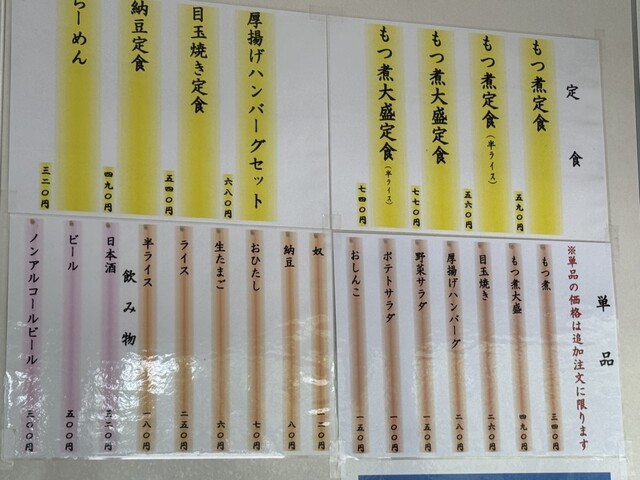 定食
もつ煮定食 五九〇円
もつ煮定食(半ライス) 五六〇円
もつ煮大盛定食 七七〇円
もつ煮大盛定食(半ライス) 七四〇円
厚揚げハンバーグセット 六八〇円
目玉焼き定食 五四〇円
納豆定食 四九〇円
らーめん 三二〇円
単品
※単品の価格は追加注文に限ります
もつ煮 三四〇円
もつ煮大盛 四九〇円
目玉焼き 二六〇円
厚揚げハンバーグ 二八〇円
野菜サラダ 一五〇円
ポテトサラダ 一〇〇円
おしんこ 一五〇円
奴 二〇円
納豆 八〇円
おひたし 七〇円
生たまご 六〇円
ライス 二五〇円
半ライス 一八〇円
飲み物
日本酒 三二〇円
ビール 五〇〇円
ノンアルコールビール 三〇〇円